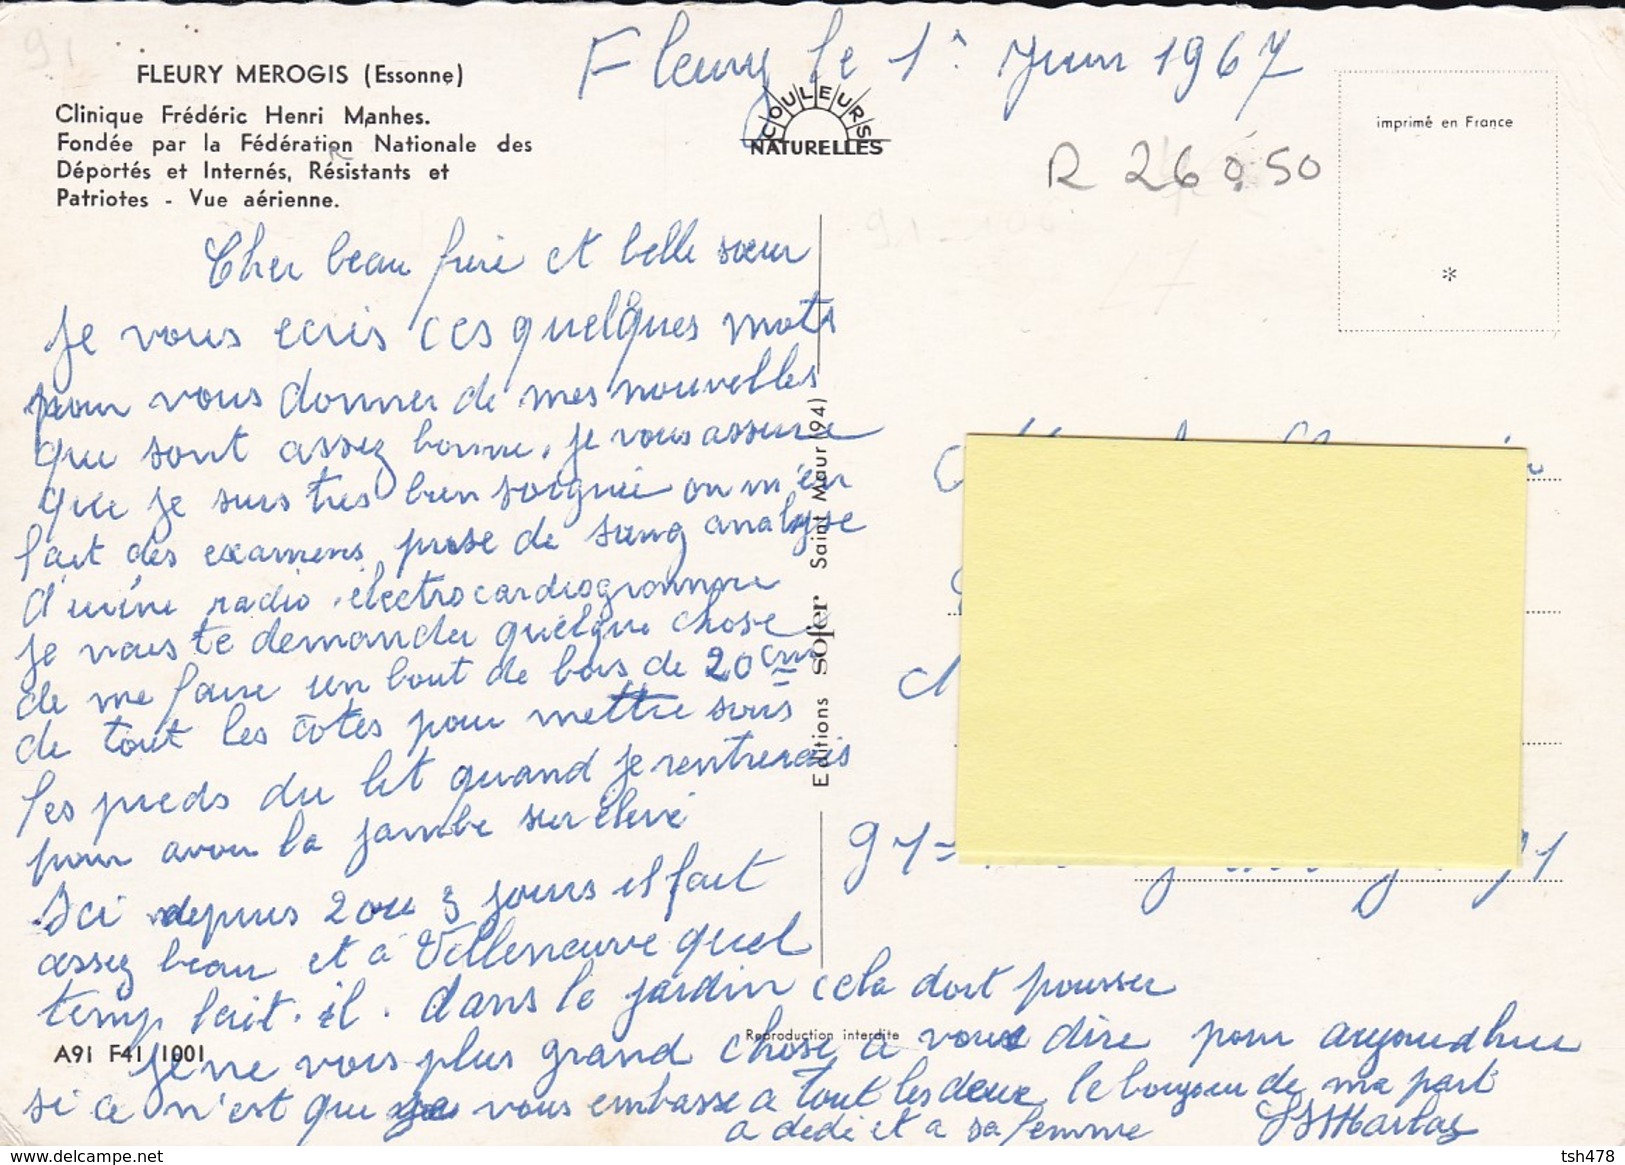 FLEURY MEROGIS (Essonne)
Clinique Frédéric Henri Manhes.
Fondée par la Fédération Nationale des
Déportés et Internés, Résistants et
Patriotes - Vue aérienne.
Fleury le 1e Juin 1967
COULEURS
NATURELLES
imprimé en France
*
R 260.50
Cher beau frère et belle sœur
Je vous ecris ces quelques mots
pour vous donner de mes nouvelles
que sont assez bonne. je vous assure
que je suis très bien soignée on m'en
fait des examens prise de sang analyse
d'urine radio électrocardiogramme
je vous te demander quelque chose
de me faire un bout de bois de 20 cm
de tout les côtes pour mettre sous
les pieds du lit quand je rentrerais
pour avoir la jambe surélevé
Ici depuis 2 ou 3 jours il fait
assez beau et à Villeneuve quel
temp fait-il. dans le jardin cela doit pousser
je ne vois plus grand chose a vous dire pour aujourdhui
si ce n'est que vous embasse a tout les deux le boujour de ma part
a dédé et a sa femme
Editions sofer Saint Maur (94)
Reproduction interdite
A91 F41 1001
91=
tsh478